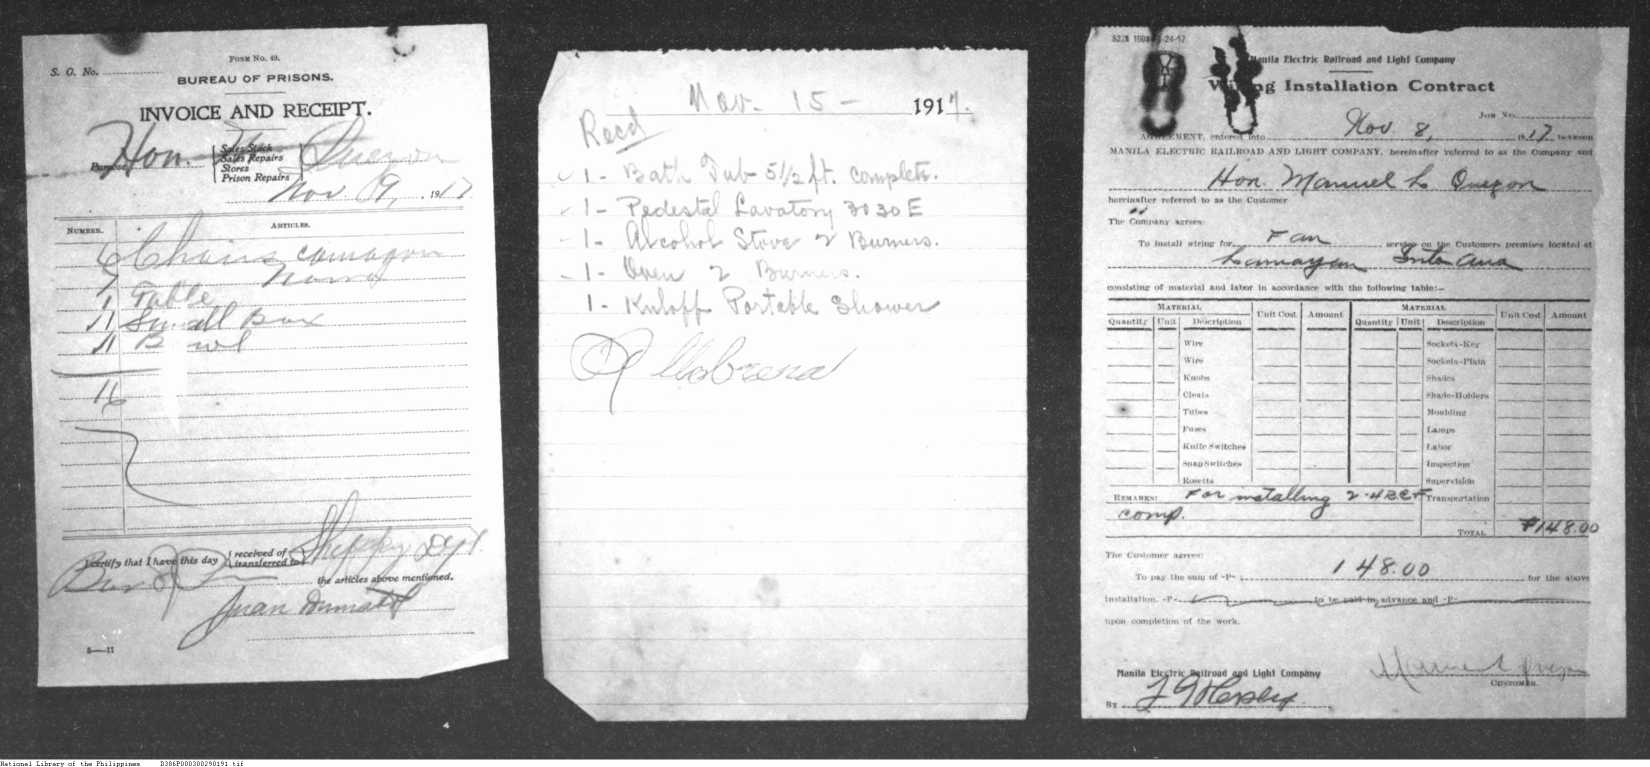 S. O. No.
FORM No. 49.
BUREAU OF PRISONS.
INVOICE AND RECEIPT.
Hon. Quezon
Purpose
Sales Stock
Sales Repairs
Stores
Prison Repairs
Nov 19, 1917
NUMBER. ARTICLES.
6 Chairs camagon
7 narra
1 Table
1 Small Box
1 Bowl
16
I certify that I have this day
I received of
transferred to
the articles above mentioned.
5—11
Nov. 15 - 1917.
Recd
1 - Bath Tub 5 1/2 ft. complete.
1 - Pedestal Lavatory 3030 E
1 - Alcohol Stove 2 Burners.
1 - Oven 2 Burners.
1 - Portable Shower
Manila Electric Railroad and Light Company
Wiring Installation Contract
JOB No.
AGREEMENT, entered into Nov 8, 1917 between
MANILA ELECTRIC RAILROAD AND LIGHT COMPANY, hereinafter referred to as the Company and
Hon. Manuel L Quezon
hereinafter referred to as the Customer
The Company agrees:
To install wiring for Fan service on the Customers premises located at
Lamayan Santa Ana
consisting of material and labor in accordance with the following table:—
MATERIAL Unit Cost Amount MATERIAL Unit Cost Amount
Quantity Unit Description Quantity Unit Description
Wire Sockets-Key
Wire Sockets-Plain
Knobs Shades
Cleats Shade-Holders
Tubes Moulding
Fuses Lamps
Knife Switches Labor
Snap Switches Inspection
Rosetts Supervision
REMARKS: For installing Transportation
comp.
TOTAL ₱148.00
The Customer agrees:
To pay the sum of -P- 148.00 for the above
installation. -P- to be paid in advance and -P-
upon completion of the work.
Manila Electric Railroad and Light Company
Manuel Quezon
CUSTOMER.
BY
National Library of the Philippines D386P000300290191.tif